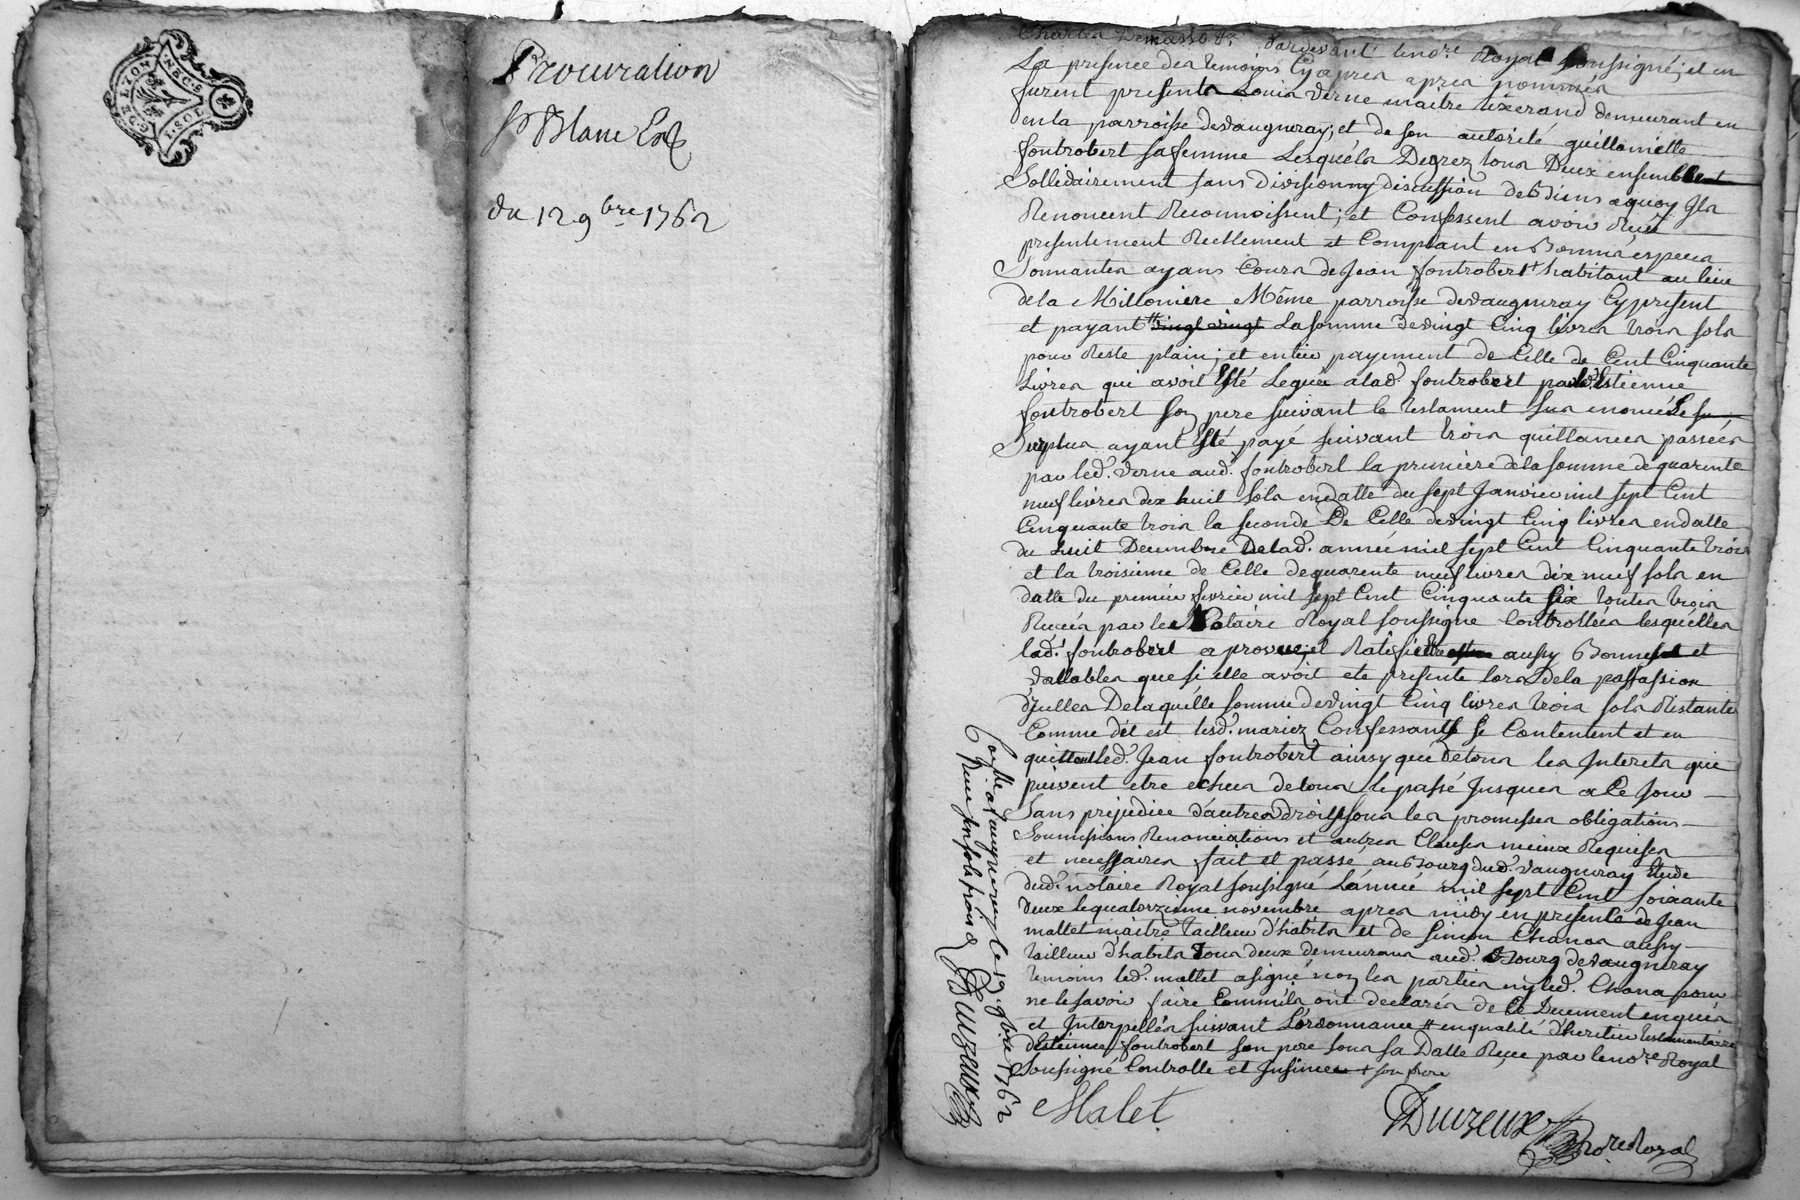 G. DE LYON
NECS
1. SOL
Procuration
Sr Blanc Est
du 12 9bre 1762
Pardevant le nore Royal soussigné; et en
La presence des temoins Cy apres apres nommés
furent presents Louis Verne maitre tixerand demeurant en
en la parroisse de Vaugneray; et de son autorité guillamette
fontrobert sa femme Lesquéls De grez tous Deux ensemblem̶e̶n̶t̶
Sollidairement sans division ny discussion de Biens a quoy Ils
Renoncent Reconnoissent; et Confessent avoir Reçu
presentement Reellement et Comptant en Bonnes especes
Sonnantes ayans Cours de Jean fontrobert + habitant au lieu
de la Millonière Même parroisse de Vaugneray Cy present
et payant # vingt vingt La somme de vingt Cinq livres trois sols
pour Reste plain; et entier payement de Celle de Cent Cinquante
Livres qui avoit Esté Leguée a lad. fontrobert par led. Estienne
fontrobert Son pere suivant le testament sus enoncé Le su
Surplus ayant Esté payé suivant trois quittances passées
par led. Verne aud. fontrobert la premiere de la somme de quarente
neuf livres dix huit sols en datte du sept Janvier mil sept Cent
Cinquante trois la seconde De Celle de vingt Cinq livres en datte
du huit Decembre De lad. année mil sept Cent Cinquante trois
et la troisieme de Celle de quarente neuf livres dix neuf sols en
datte du premier fevrier mil sept Cent Cinquante Six toutes trois
Reçues par le Notaire Royal soussigné Controllées lesquélles
lad. fontrobert aprouve; et Ratifie aussy Bonnes et
Vallables que si elle avoit ete presente lors de la passassion
d'jcelles De laquélle somme de vingt Cinq livres trois sols Restante
Comme dit est lesd. mariez Confessants se Contentent et en
quittent led. Jean fontrobert ainsy que de tous les Interets qui
puivent etre echeus de tous le passé Jusques a Ce Jour
Sans préjudice d'autres droits sous les promesses obligations
Soumissions Renonciations et autres Clauses mieux Requises
et necessaires fait et passé au Bourg dud. Vaugneray Etude
dud. notaire Royal soussigné L'année mil sept Cent soixante
Deux Le quatorzieme novembre apres midy en presence de Jean
mallet maitre Tailleur d'habits et de Simon Chanas aussy
tailleur d'habits tous deux demeurans aud. Bourg de Vaugneray
temoins led. mallet a signé non les parties ny led. Chana pour
ne le savoir faire Comm'ils ont declarés de Ce Duement enquis
et Interpellés suivant L'ordonnance # en qualité d'heritier testamentaire
d'Estienne fontrobert son pere sous sa Datte Reçu par le nore Royal
soussigné Controllé et Insinué + son frere
Malet
Duzeux
nore Royal
Conlle a Vaugneray le 19. 9bre 1762
Reçu six sols six d. Duzeux